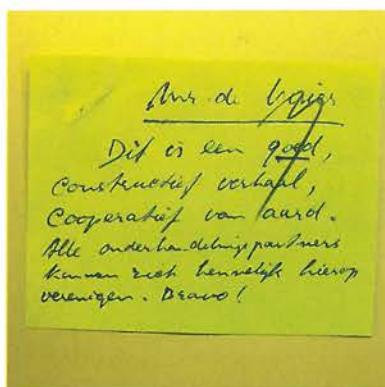 de
Dit is een goed,
constructief verhaal,
Coöperatief van aard.
Alle onderhandelingspartners
kunnen zich hierop
verenigen. Bravo!